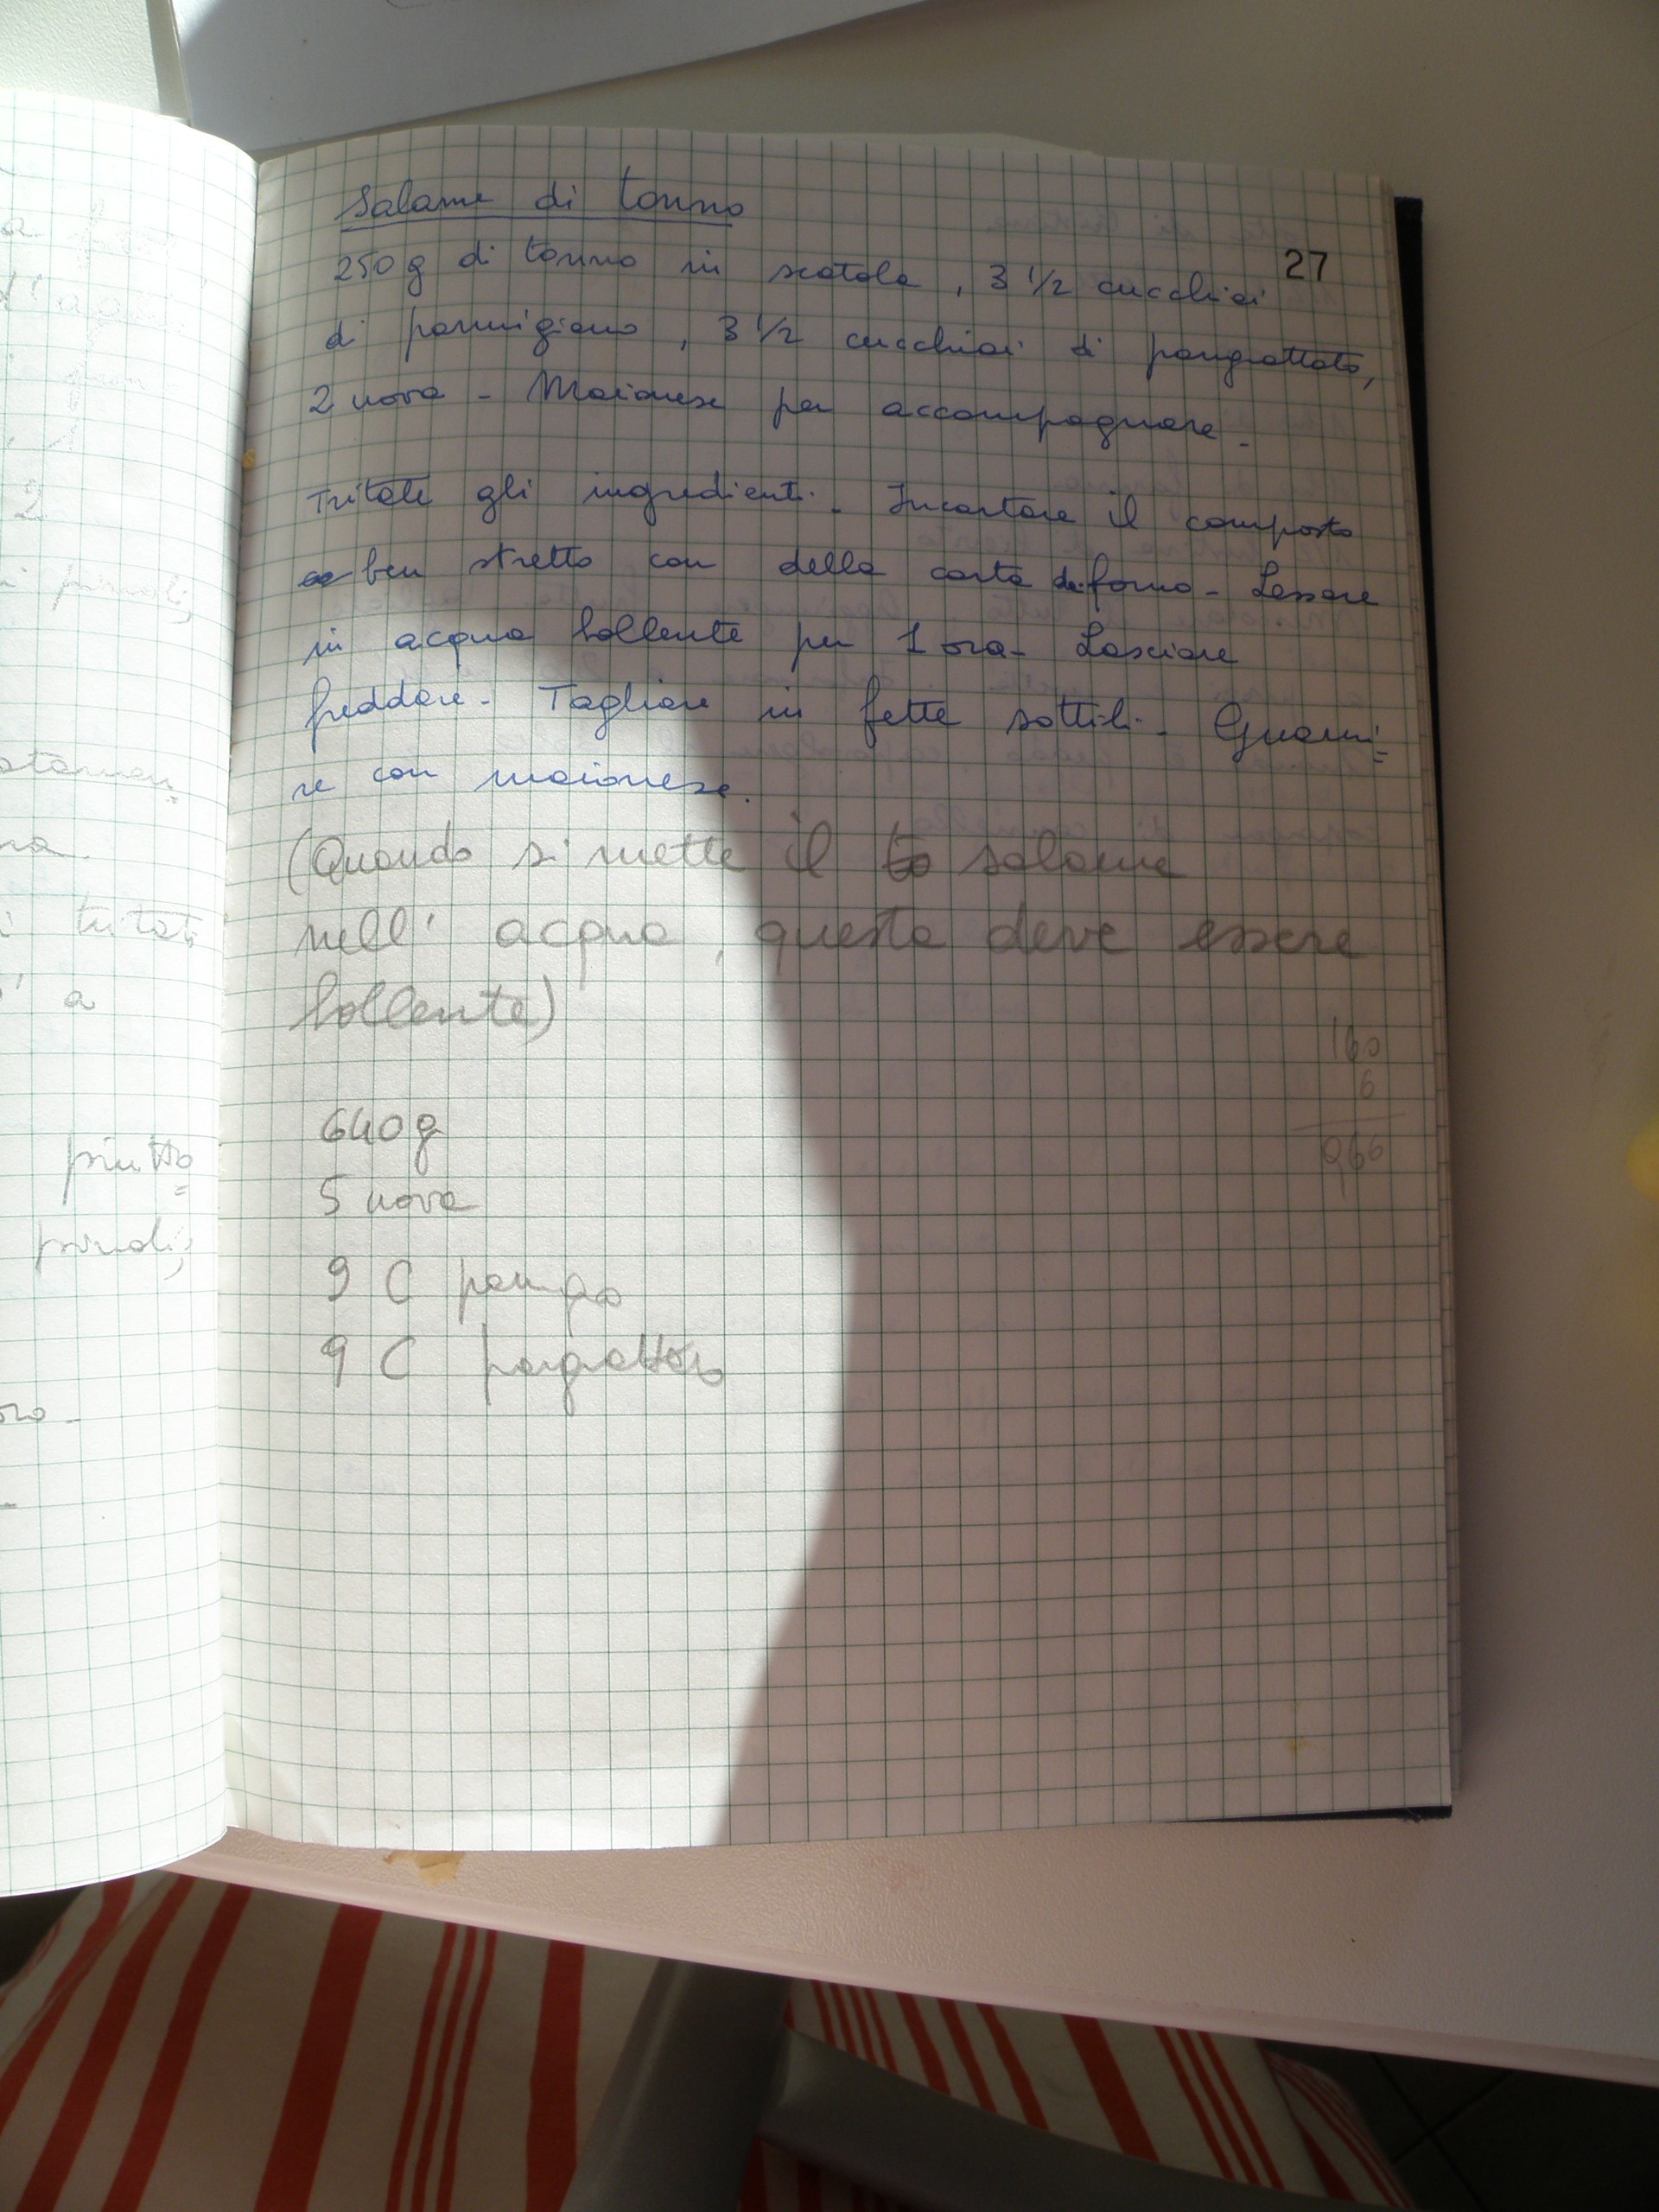 a
d'acqua
2
pinoli;
na
tritati
a
piutto=
pinoli;
Salame di tonno
27
250 g di tonno in scatola, 3 1/2 cucchiai
di parmigiano, 3 1/2 cucchiai di pangrattato,
2 uova - Maionese per accompagnare -
Tritate gli ingredienti. Incartare il composto
ben stretto con della carta da forno - Lessare
in acqua bollente per 1 ora - Lasciare
freddare - Tagliare in fette sottili - Guarni=
re con maionese.
(Quando si mette il to salame
nell' acqua, questa deve essere
bollente)
160
6
960
640 g
5 uova
9 C
9 C pangrattato